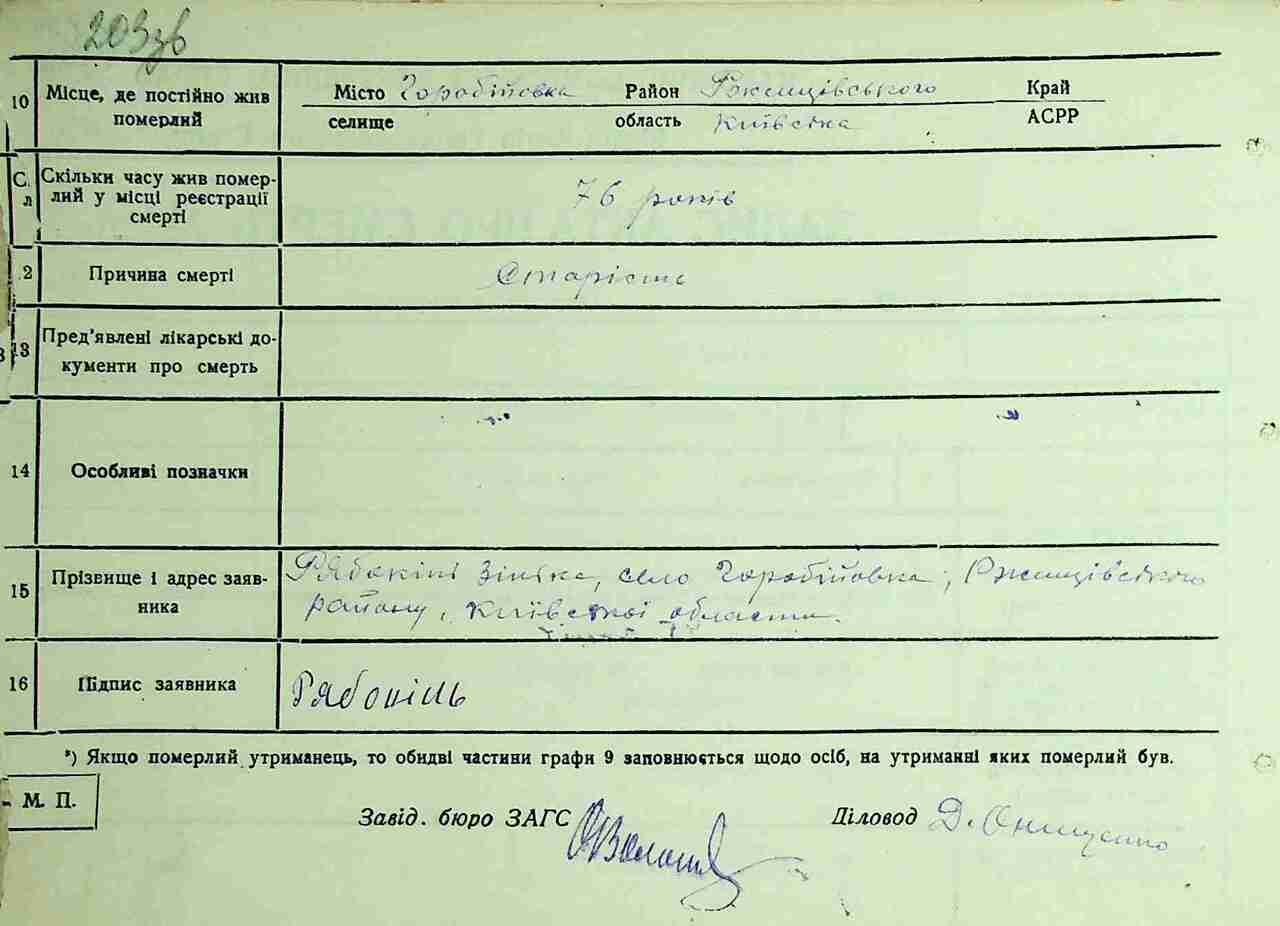 203зв
10 Місце, де постійно жив Місто Горобіїовка Район Ржищівського Край
померлий селище область Київська АСРР
Скільки часу жив помер-
лий у місці реєстрації 76 років
смерті
2 Причина смерті Старість
13 Пред'явлені лікарські до-
кументи про смерть
14 Особливі позначки
15 Прізвище і адрес заяв- Зінька, село Горобіїовка, Ржищівського
ника району, Київської области.
16 Підпис заявника Рябокінь
*) Якщо померлий утриманець, то обидві частини графи 9 заповнюється щодо осіб, на утриманні яких померлий був.
М. П.
Завід. бюро ЗАГС Діловод Д. Онищенко